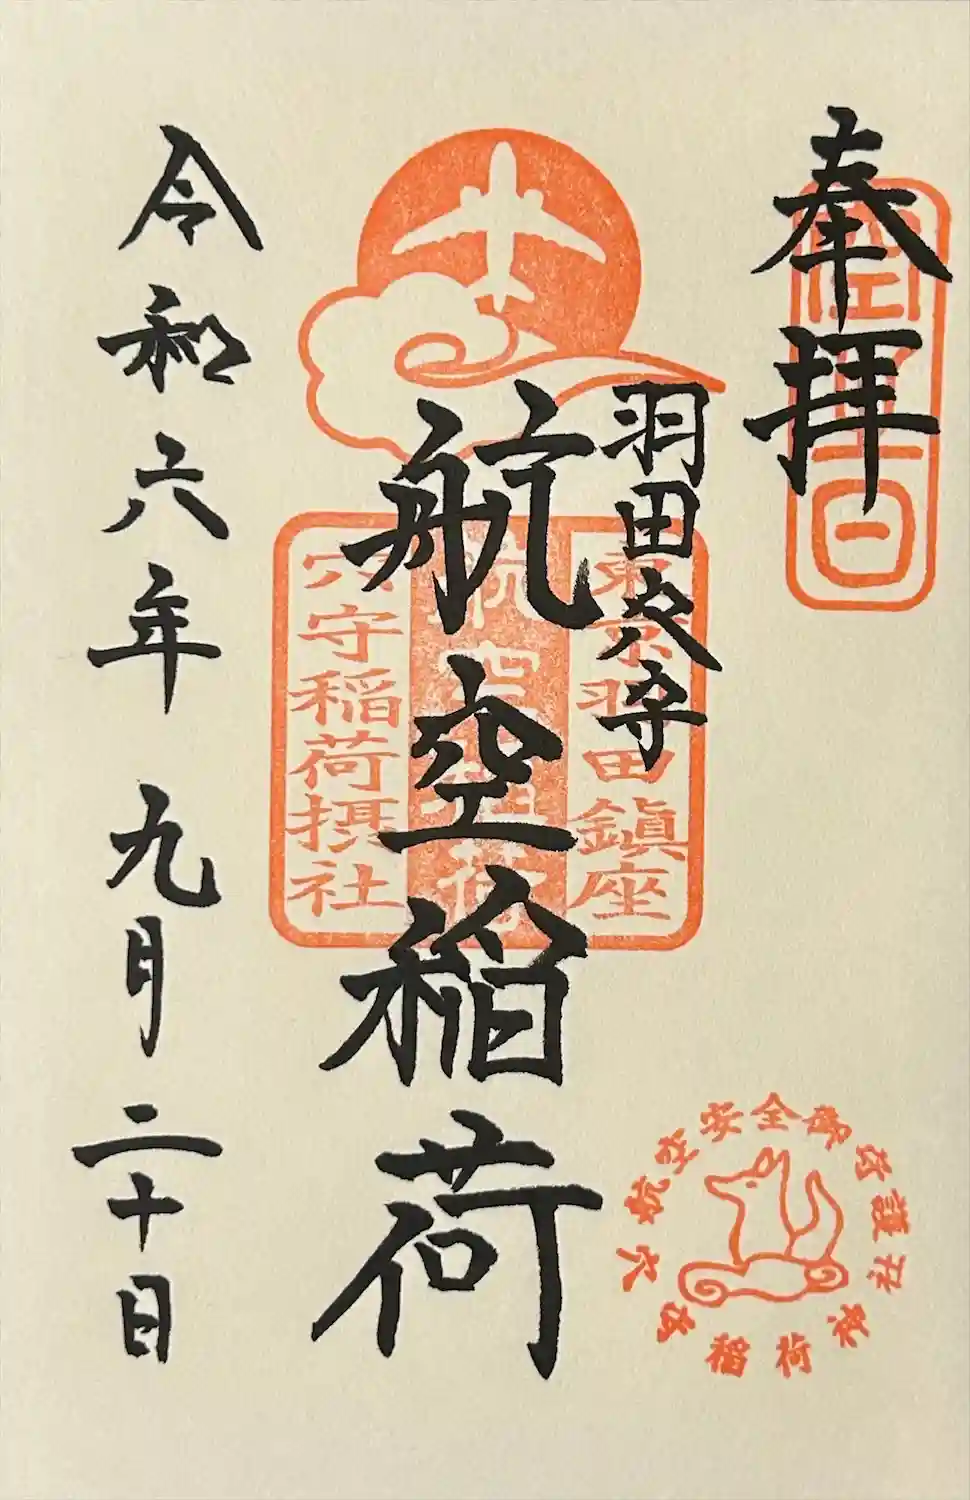 奉拝
羽田穴守
航空稲荷
令和六年 九月二十日
空の日
東京羽田鎮座
航空稲荷
穴守稲荷摂社
航空安全御守護
穴守稲荷神社